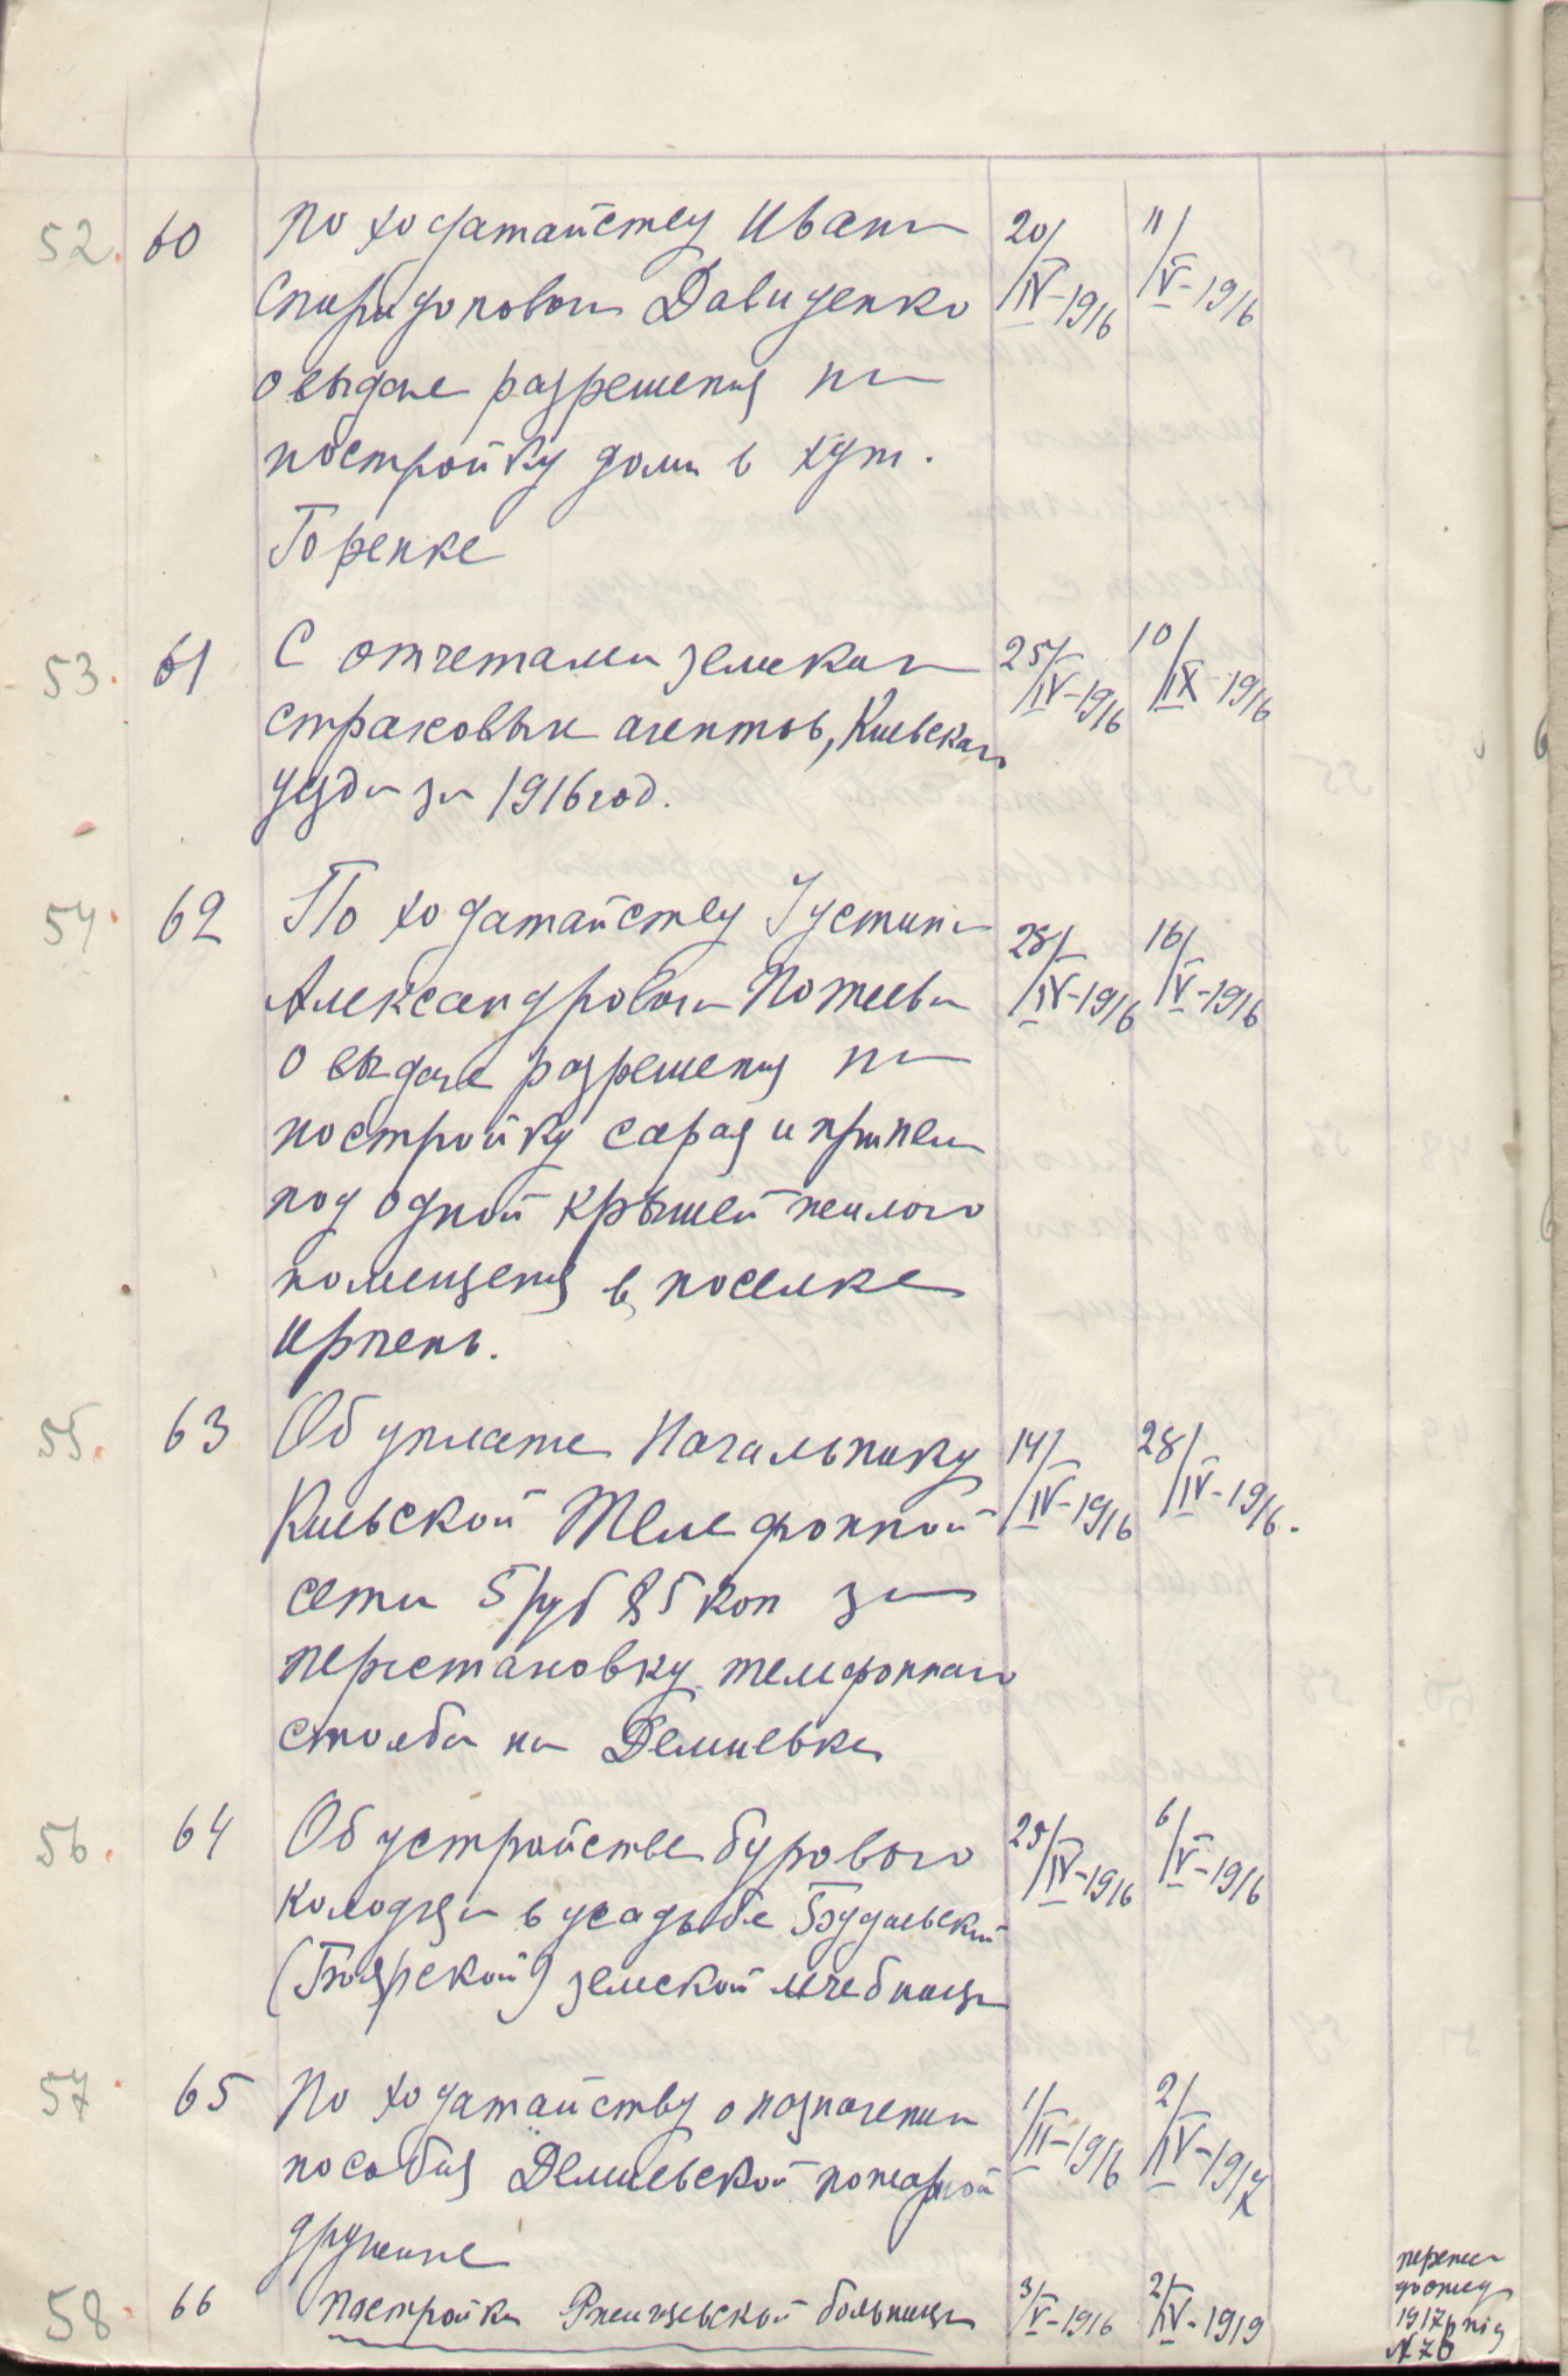 52. 60 По ходатайству Ивана 20/IV-1916 11/V-1916
Спиридонова Давиденко
о выдаче разрешения на
постройку дома в хут.
Горенке
53. 61 С отчетами земских 25/IV-1916 10/IX-1916
страховых агентов, Киевскаго
уезда за 1916 год.
54. 62 По ходатайству Густина 28/IV-1916 16/V-1916
Александрова
о выдаче разрешения на
постройку сарая и
под одной крышей теплого
помещения в поселке
Ирпень.
55. 63 Об уплате Начальнику 14/IV-1916 28/IV-1916.
Киевской Телефонной
сети 5 руб 85 коп за
перестановку телефоннаго
столба на Демиевке
56. 64 Об устройстве бурового 25/IV-1916 6/V-1916
колодезя в усадьбе Будаевской
(Боярской) земской лечебницы
57. 65 По ходатайству о назначении 1/II-1916 2/IV-1917
пособия Демиевской пожарной
дружине
58. 66 Постройка больницы 3/V-1916 2/IV-1919
1917р під
№ 70